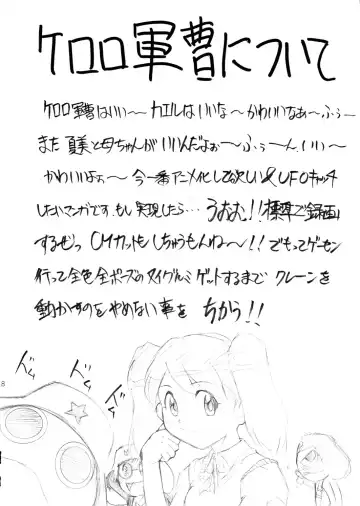 ケロロ軍曹について
ケロロ軍曹はいい〜カエルはいいな〜かわいいなぁ〜ふぅー
また夏美と母ちゃんがいいんだよぉ〜ふぅーん、いい〜
かわいいよぉ〜 今一番アニメ化して欲しい&UFOキャッチ
したいマンガです。もし実現したら…うおお!!標準で録画
するぜっ CMカットもしちゃうもんね〜!!でもってゲーセン
行って全色全ポーズのヌイグルミゲットするまで クレーンを
動かすのをやめない事を ちかう!!
ズム
ズム
8